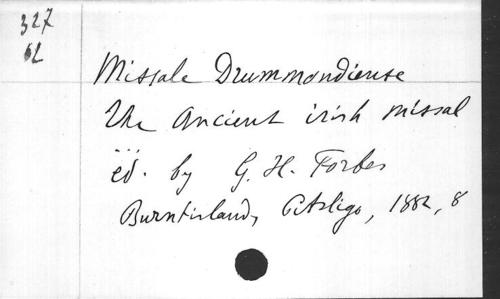 327
62
Missale Drummondiense
The Ancient irish missal
... ed. by G. H. Forbes
Burntisland, Pitsligo, 1882, 8